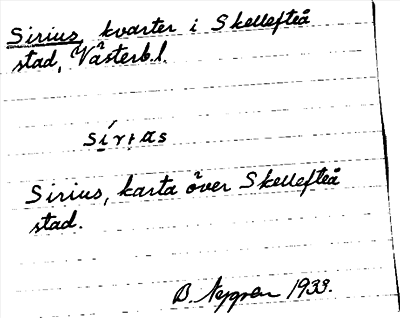 Sirius, kvarter i Skellefteå
stad, Västerb.l.
Sirius, karta över Skellefteå
stad.
B. Nygren 1933.